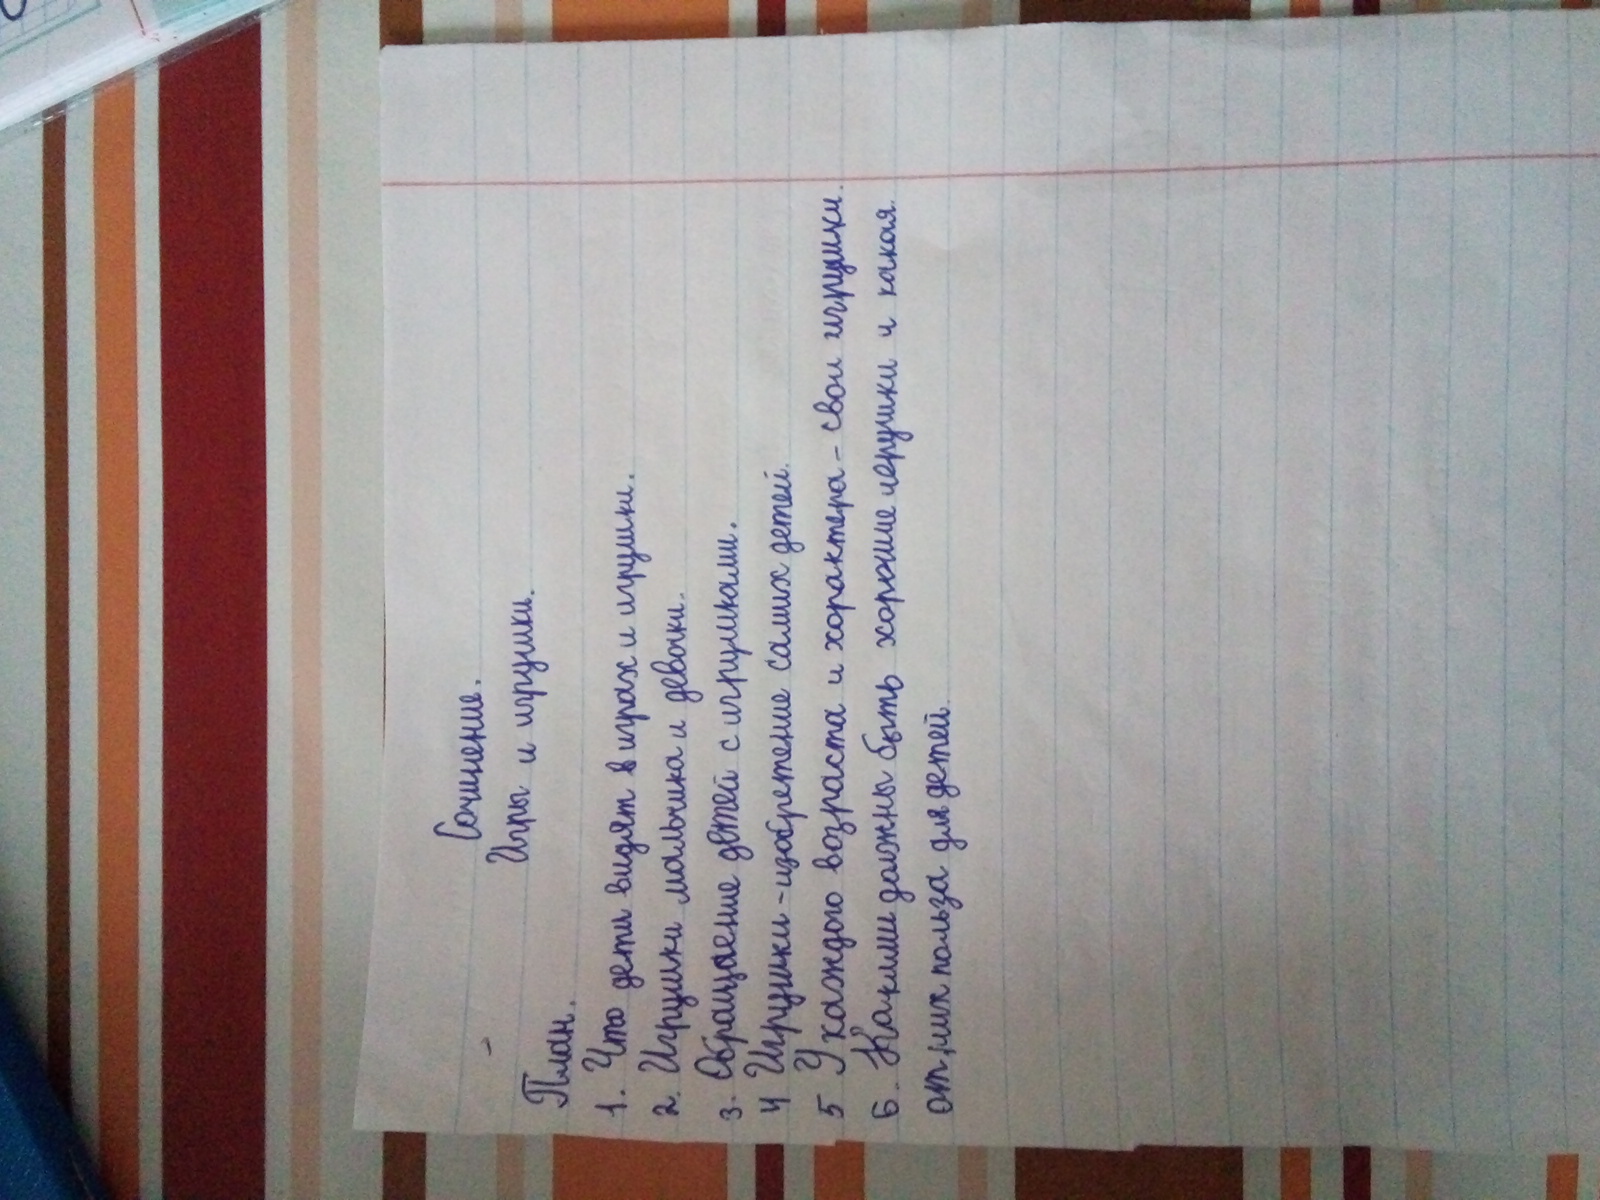 Сочинение.
Игры и игрушки.
План.
1. Что дети видят в играх и игрушки.
2. Игрушки мальчика и девочки.
3. Обращение детей с игрушками.
4 Игрушки-изобретение самих детей.
5 У каждого возраста и характера - свои игрушки.
6. Какими должны быть хорошие игрушки и какая
от них польза для детей.